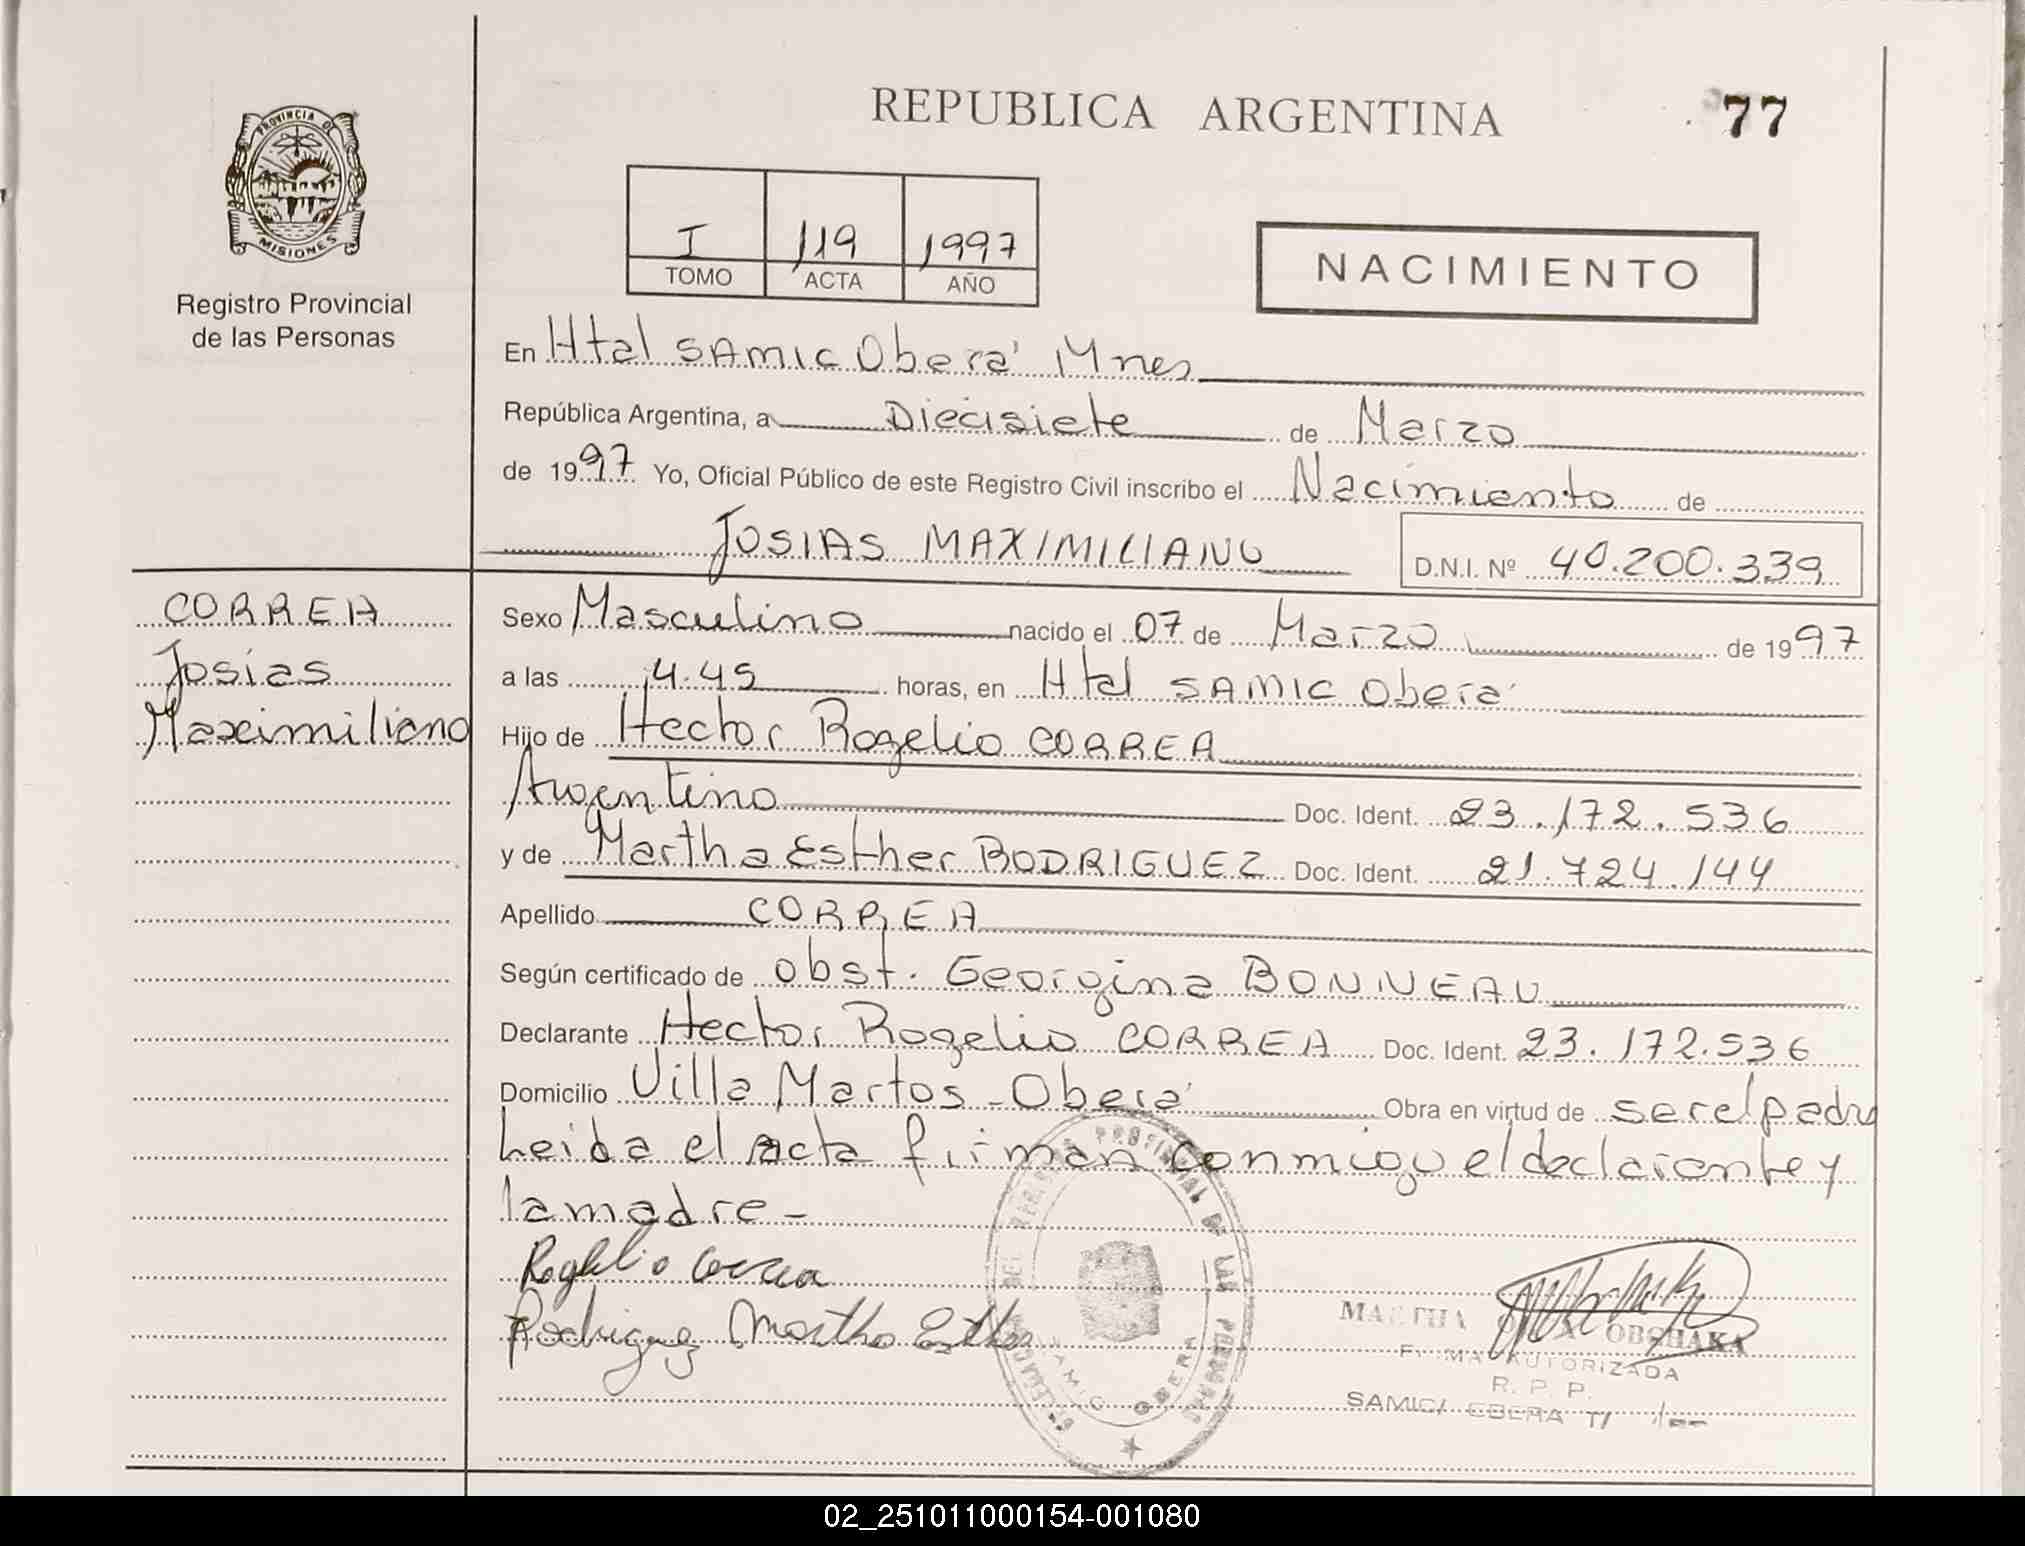 REPUBLICA ARGENTINA
77
PROVINCIA DE
MISIONES
Registro Provincial
de las Personas
I 119 1997
TOMO ACTA AÑO
NACIMIENTO
En Htal SAMIC Oberá Mnes
República Argentina, a Diecisiete de Marzo
de 1997 Yo, Oficial Público de este Registro Civil inscribo el Nacimiento de
JOSIAS MAXIMILIANO
D.N.I. Nº 40.200.339
CORREA
Josias
Maximiliano
Sexo Masculino nacido el 07 de Marzo de 1997
a las 4.45 horas, en Htal SAMIC Oberá
Hijo de Hector Rogelio CORREA
Argentino Doc. Ident. 23.172.536
y de Martha Esther RODRIGUEZ Doc. Ident. 21.724.144
Apellido CORREA
Según certificado de obst. Georgina BONNEAU
Declarante Hector Rogelio CORREA Doc. Ident. 23.172.536
Domicilio Villa Martos - Oberá Obra en virtud de ser el padre
Leida el acta firman conmigo el declarante y
la madre -
Rogelio Correa
Rodriguez Martha Esther
DELEGACION DEL REGISTRO PROVINCIAL DE LAS PERSONAS
SAMIC OBERA
MARTHA OBSHAKA
FIRMA AUTORIZADA
R. P. P.
SAMIC/ OBERA
02_251011000154-001080